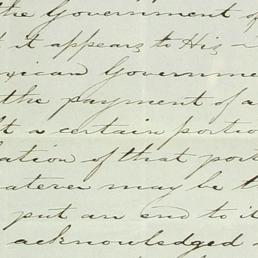 the Government of
it appears to His
xican Governme
the payment of a
t a certain portio
lation of that port
atever may be t
put an end to it
acknowledged